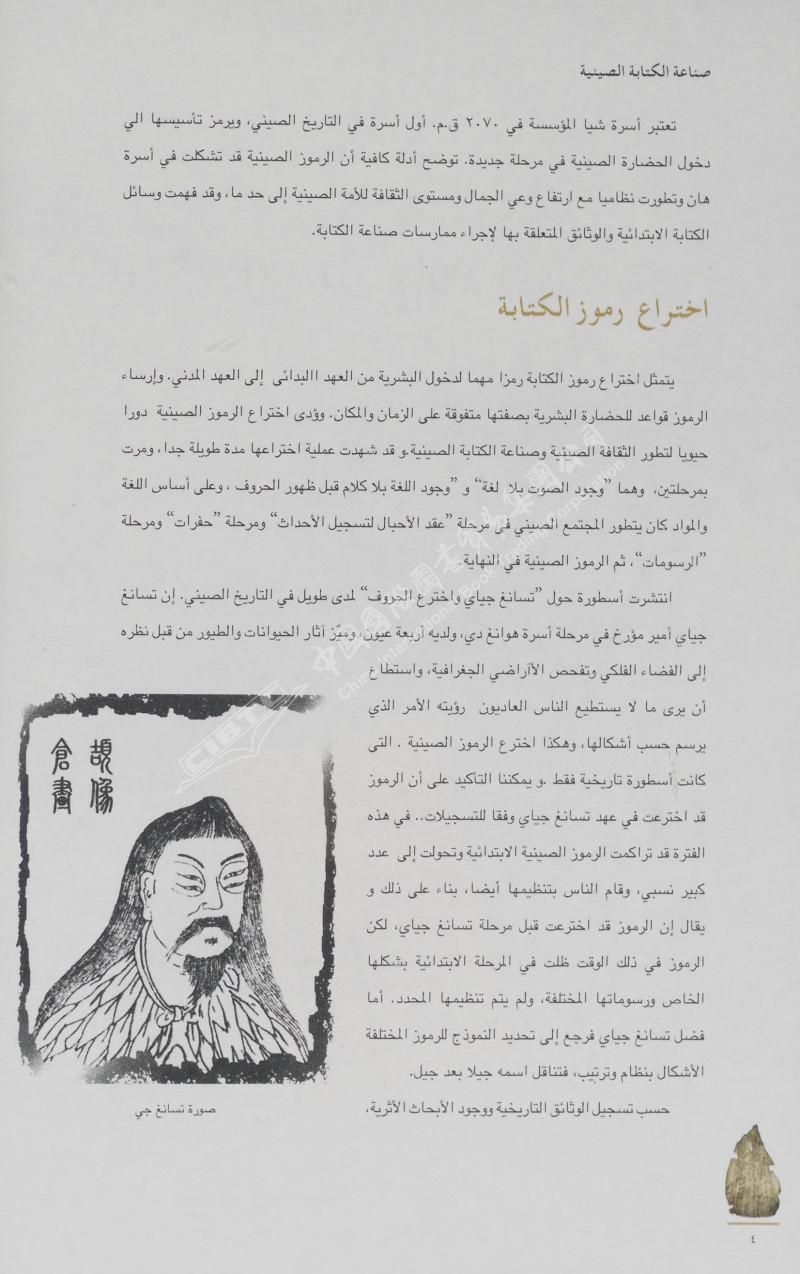 صناعة الكتابة الصينية
تعتبر أسرة شيا المؤسسة في ٢٠٧٠ ق.م. أول أسرة في التاريخ الصيني، ويرمز تأسيسها الي
دخول الحضارة الصينية في مرحلة جديدة. توضح أدلة كافية أن الرموز الصينية قد تشكلت في أسرة
هان وتطورت نظاميا مع ارتفاع وعي الجمال ومستوى الثقافة للأمة الصينية إلى حد ما، وقد فهمت وسائل
الكتابة الابتدائية والوثائق المتعلقة بها لإجراء ممارسات صناعة الكتابة.
اختراع رموز الكتابة
يتمثل اختراع رموز الكتابة رمزا مهما لدخول البشرية من العهد االبدائى إلى العهد المدني. وإرساء
الرموز قواعد للحضارة البشرية بصفتها متفوقة على الزمان والمكان. ويؤدى اختراع الرموز الصينية دورا
حيويا لتطور الثقافة الصينية وصناعة الكتابة الصينية.و قد شهدت عملية اختراعها مدة طويلة جدا، ومرت
بمرحلتين، وهما ”وجود الصوت بلا لغة“ و ”وجود اللغة بلا كلام قبل ظهور الحروف ، وعلى أساس اللغة
والمواد كان يتطور المجتمع الصيني في مرحلة ”عقد الأحبال لتسجيل الأحداث“ ومرحلة ”حفرات“ ومرحلة
”الرسومات“، ثم الرموز الصينية في النهاية.
انتشرت أسطورة حول ”تسانغ جياي واخترع الحروف“ لمدى طويل في التاريخ الصيني. إن تسانغ
جياي أمير مؤرخ في مرحلة أسرة هوانغ دي، ولديه أربعة عيون، وميّز آثار الحيوانات والطيور من قبل نظره
إلى الفضاء الفلكي وتفحص الآاراضي الجغرافية، واستطاع
أن يرى ما لا يستطيع الناس العاديون رؤيته الأمر الذي
يرسم حسب أشكالها، وهكذا اخترع الرموز الصينية . التى
كانت أسطورة تاريخية فقط .و يمكننا التأكيد على أن الرموز
قد اخترعت في عهد تسانغ جياي وفقا للتسجيلات.. في هذه
الفترة قد تراكمت الرموز الصينية الابتدائية وتحولت إلى عدد
كبير نسبي، وقام الناس بتنظيمها أيضا، بناء على ذلك و
يقال إن الرموز قد اخترعت قبل مرحلة تسانغ جياي، لكن
الرموز في ذلك الوقت ظلت في المرحلة الابتدائية بشكلها
الخاص ورسوماتها المختلفة، ولم يتم تنظيمها المحدد. أما
فضل تسانغ جياي فرجع إلى تحديد النموذج للرموز المختلفة
الأشكال بنظام وترتيب، فتناقل اسمه جيلا بعد جيل.
حسب تسجيل الوثائق التاريخية ووجود الأبحاث الأثرية،
倉頡
畫像
صورة تسانغ جي
٤
CIBTC
中国国际图书贸易集团公司
China International Book Trading Corporation